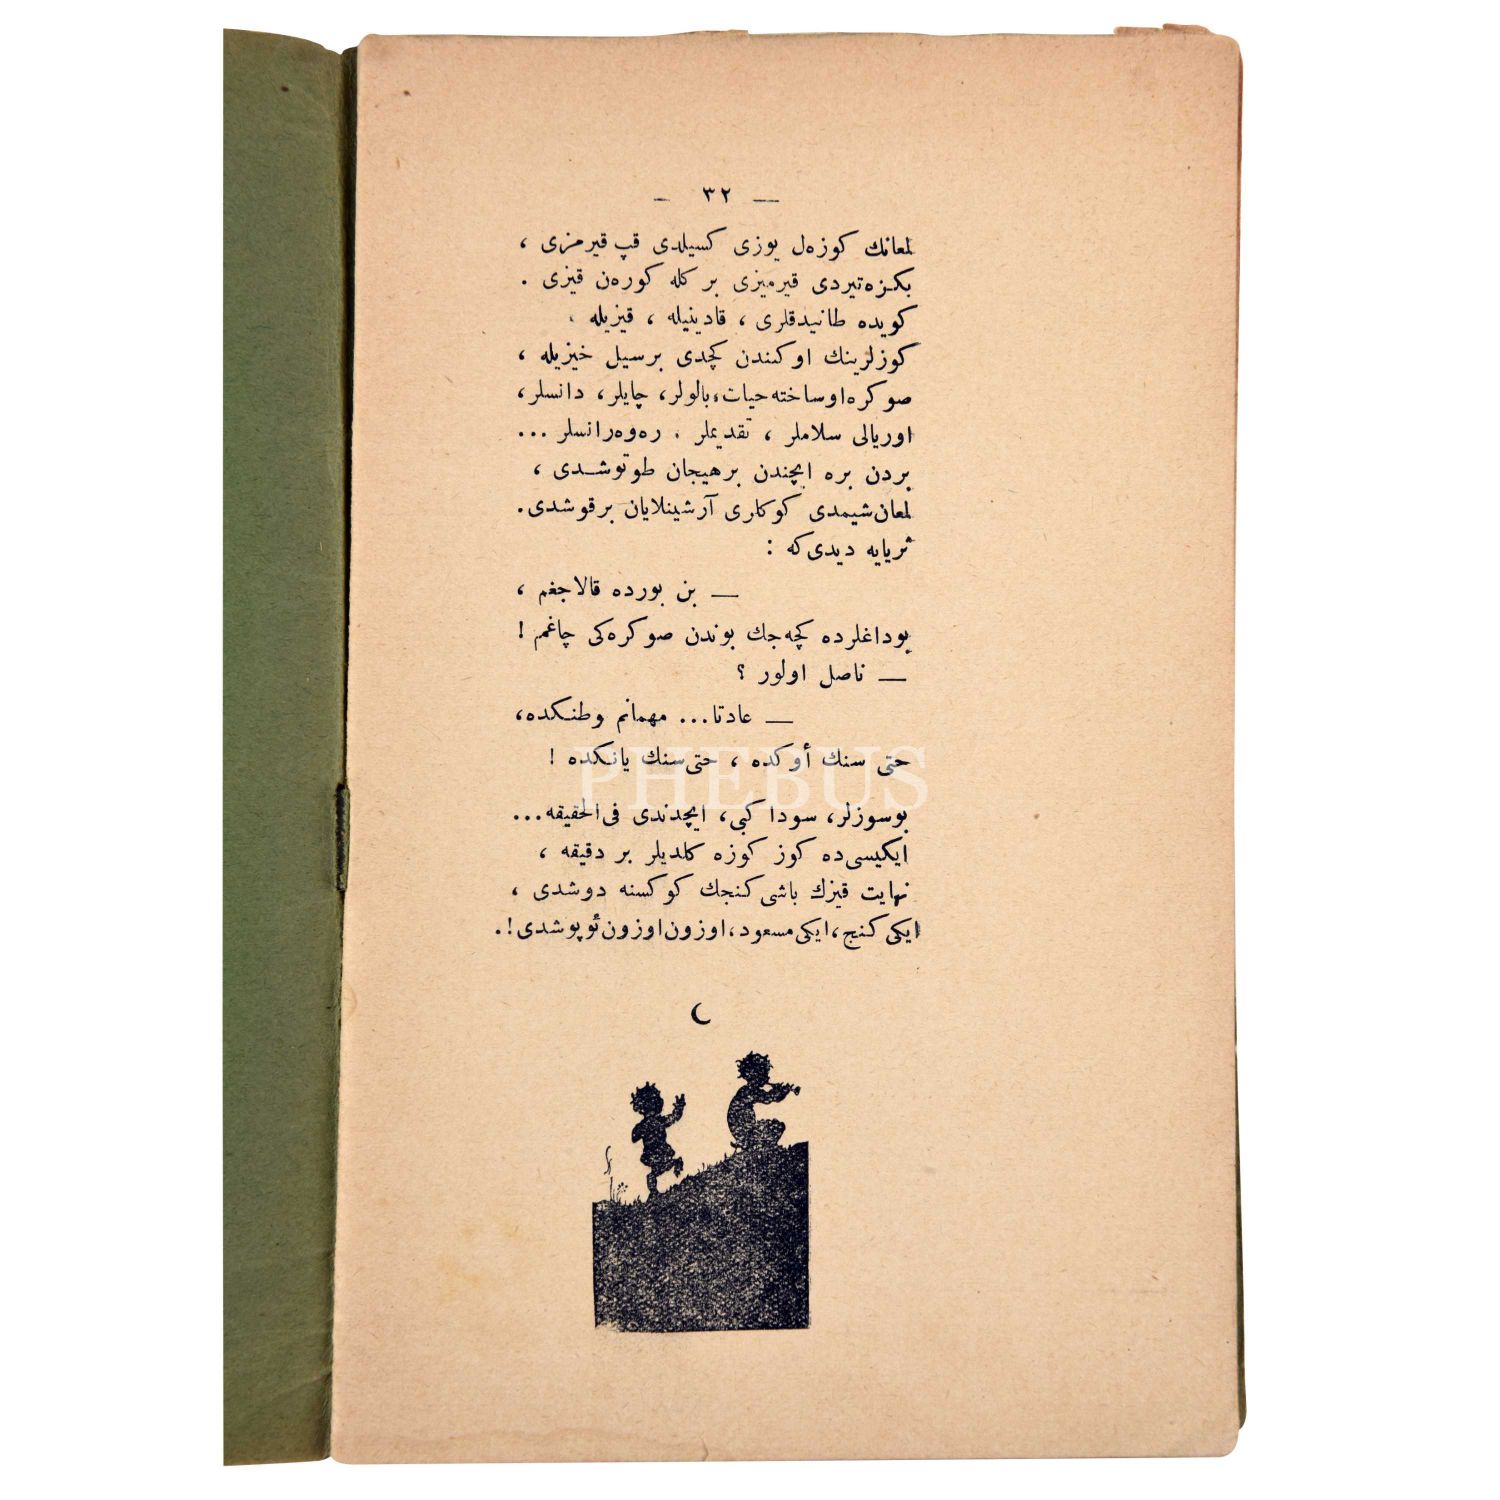 — ٣٢ —
لمعانك كوزه‌ل يوزى كسيلدى قپ قيرمزى ،
بكزه‌تيردى قيرميزى بر كله كوره‌ن قيزى .
كويده طانيدقلرى ، قادينيله ، قيزيله ،
كوزلرينك اوكندن كچدى بر سيل خيزيله ،
صوكره او ساخته حيات، بالولر، چايلر، دانسلر،
اوريالى سلاملر ، تقديملر ، ره‌وه‌رانسلر ...
بردن بره ايچندن بر هيجان طوتوشدى ،
لمعان شيمدى كوكلرى آرشينلايان بر قوشدى.
ثريايه ديدى كه :
— بن بورده قالاجغم ،
بو داغلرده كچه‌جك بوندن صوكره‌كى چاغم !
— ناصل اولور ؟
— عادتا... مهمانم وطنكده،
حتى سنك أوكده ، حتى سنك يانكده !
PHEBUS
بو سوزلر، سودا كبى، ايچدندى فى الحقيقه...
ايكيسى ده كوز كوزه كلديلر بر دقيقه ،
نهايت قيزك باشى كنجك كوكسنه دوشدى ،
ايكى كنج، ايكى مسعود، اوزون اوزون ئوپوشدى!.